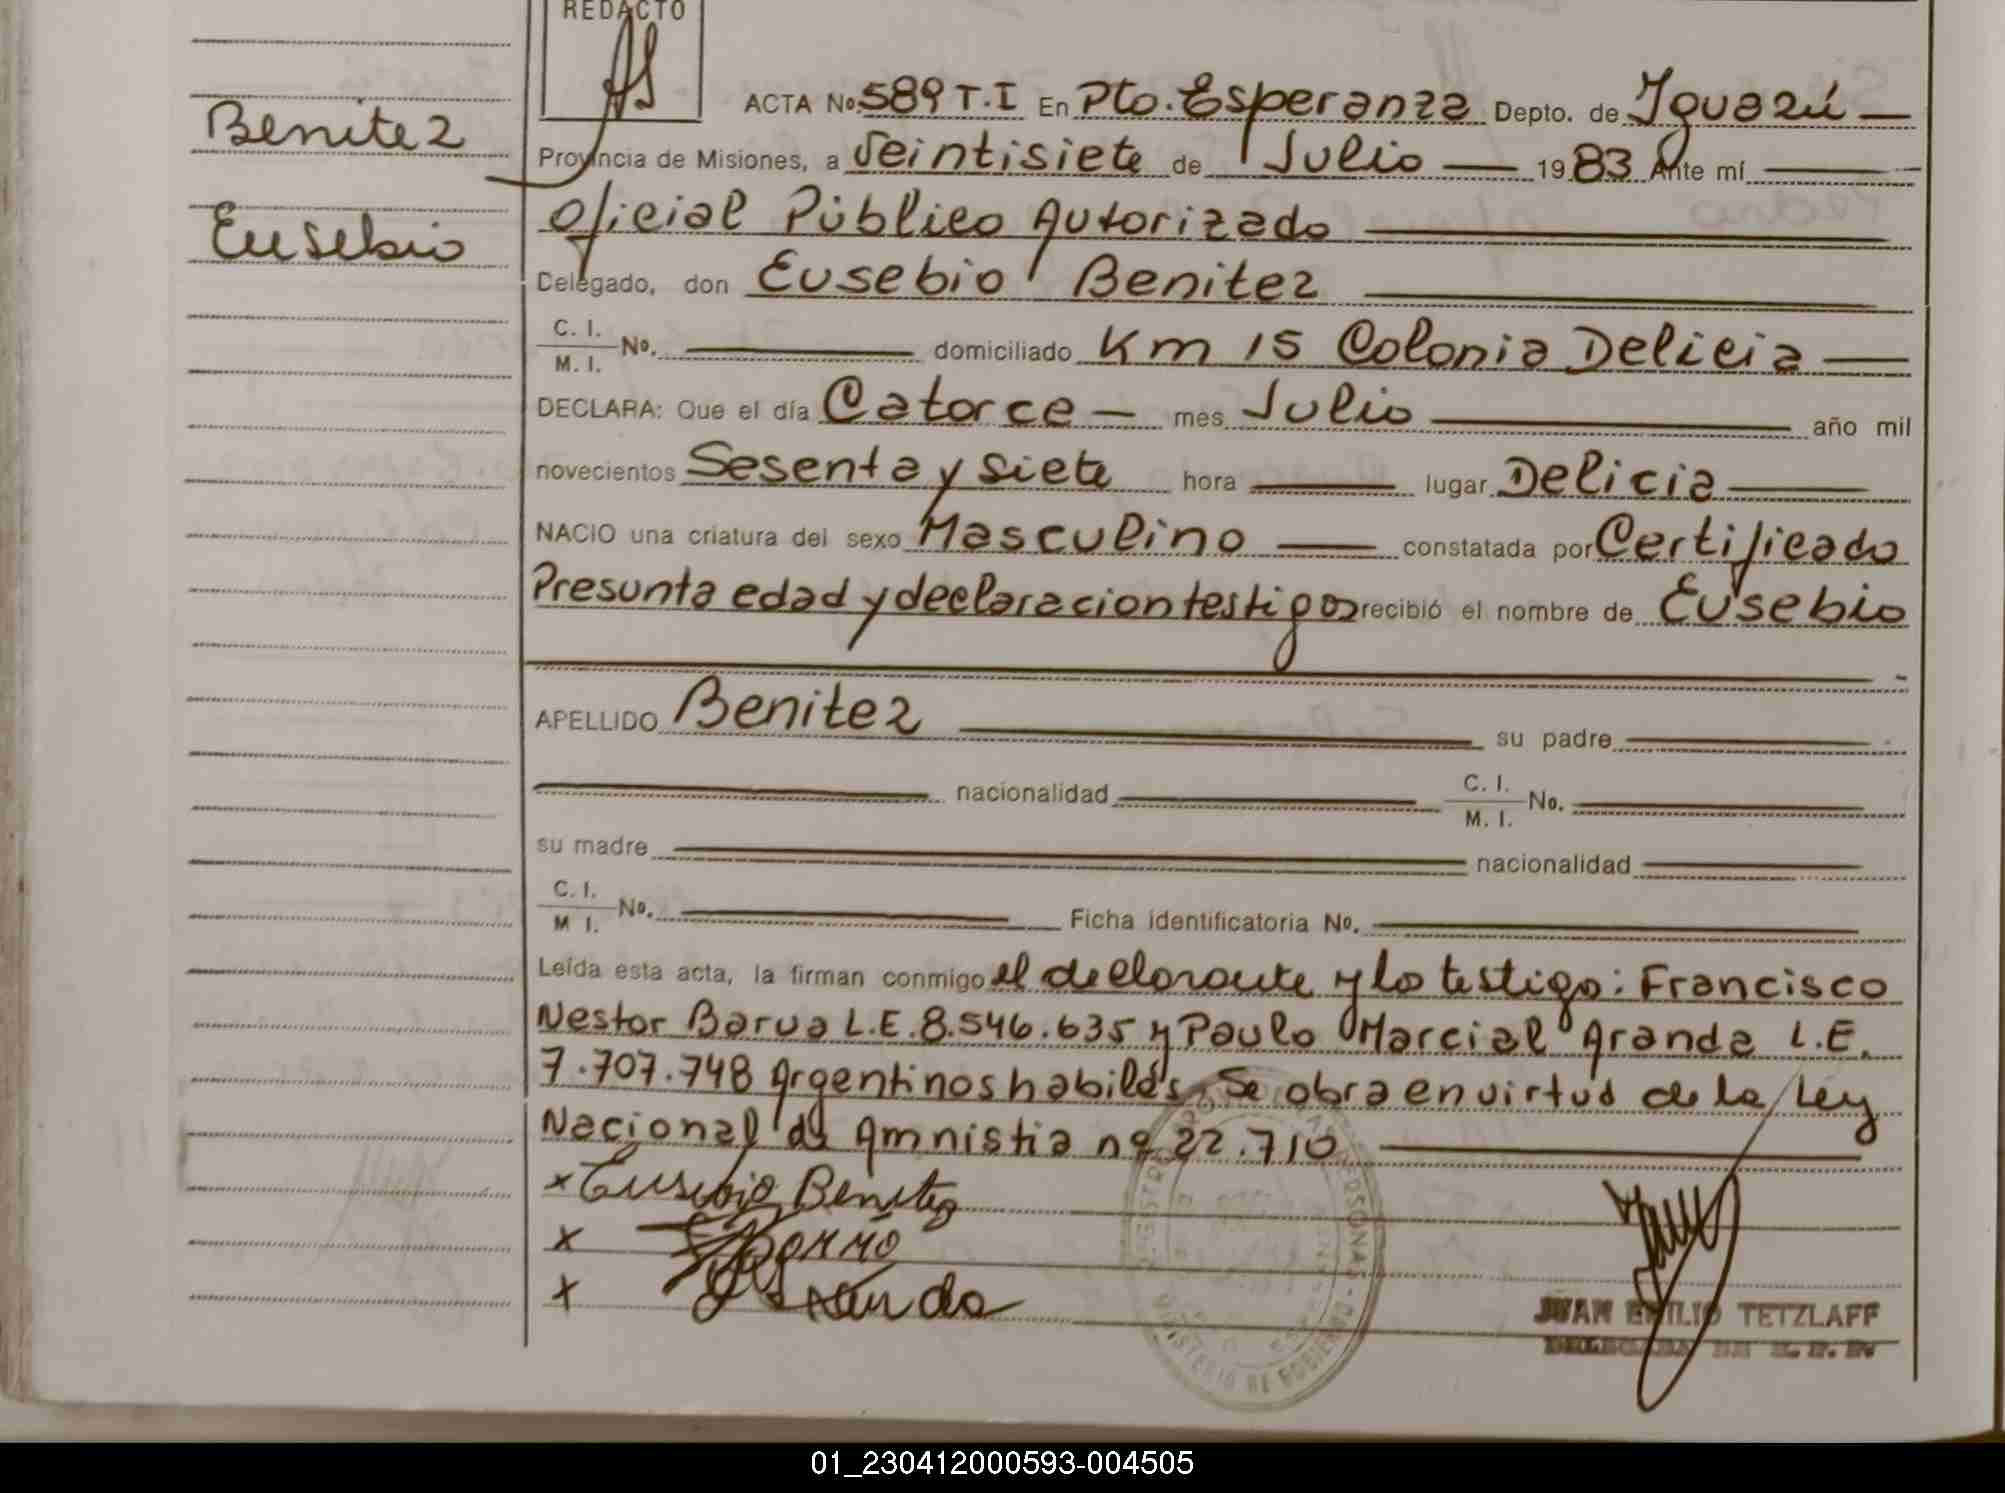 REDACTO
Benitez
Eusebio
ACTA No. 589 T.I En Pto. Esperanza Depto. de Iguazú
Provincia de Misiones, a Veintisiete de Julio 1983 Ante mí
Oficial Público Autorizado
Delegado, don Eusebio Benitez
C. I. / M. I. No. domiciliado Km 15 Colonia Delicia
DECLARA: Que el día Catorce mes Julio año mil
novecientos Sesenta y siete hora lugar Delicia
NACIO una criatura del sexo Masculino constatada por Certificado
Presunta edad y declaracion testigos recibió el nombre de Eusebio
APELLIDO Benitez su padre
nacionalidad C. I. / M. I. No.
su madre nacionalidad
C. I. / M I. No. Ficha identificatoria No.
Leída esta acta, la firman conmigo el declarante y lo testigo: Francisco
Nestor Barua L.E. 8.546.635 y Paulo Marcial Aranda L.E.
7.707.748 Argentinos habiles, Se obra en virtud de la Ley
Nacional de Amnistia nº 22.710
x Eusebio Benitez
x
x
MINISTERIO DE GOBIERNO
JUAN EMILIO TETZLAFF
01_230412000593-004505